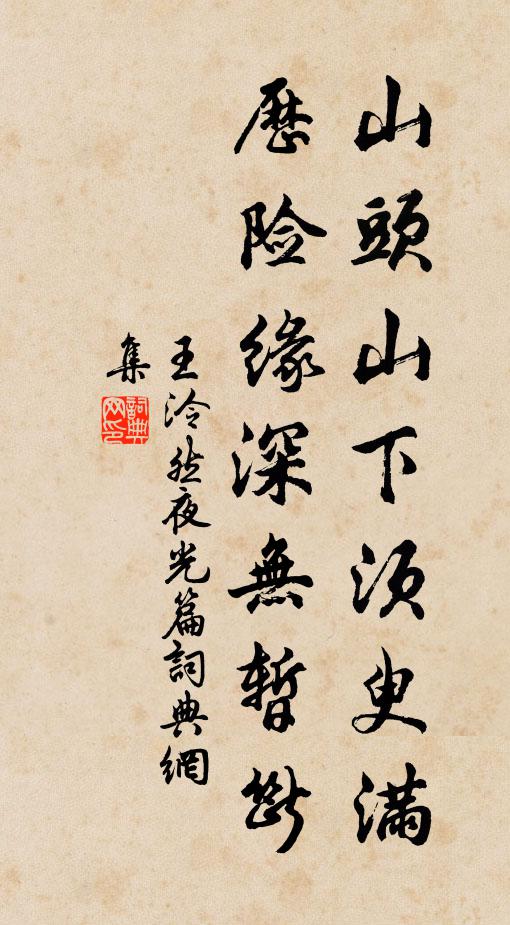 山頭山下須臾滿
歷險緣深無暫斷
王泠然夜光篇詞典網
集
詞典網印